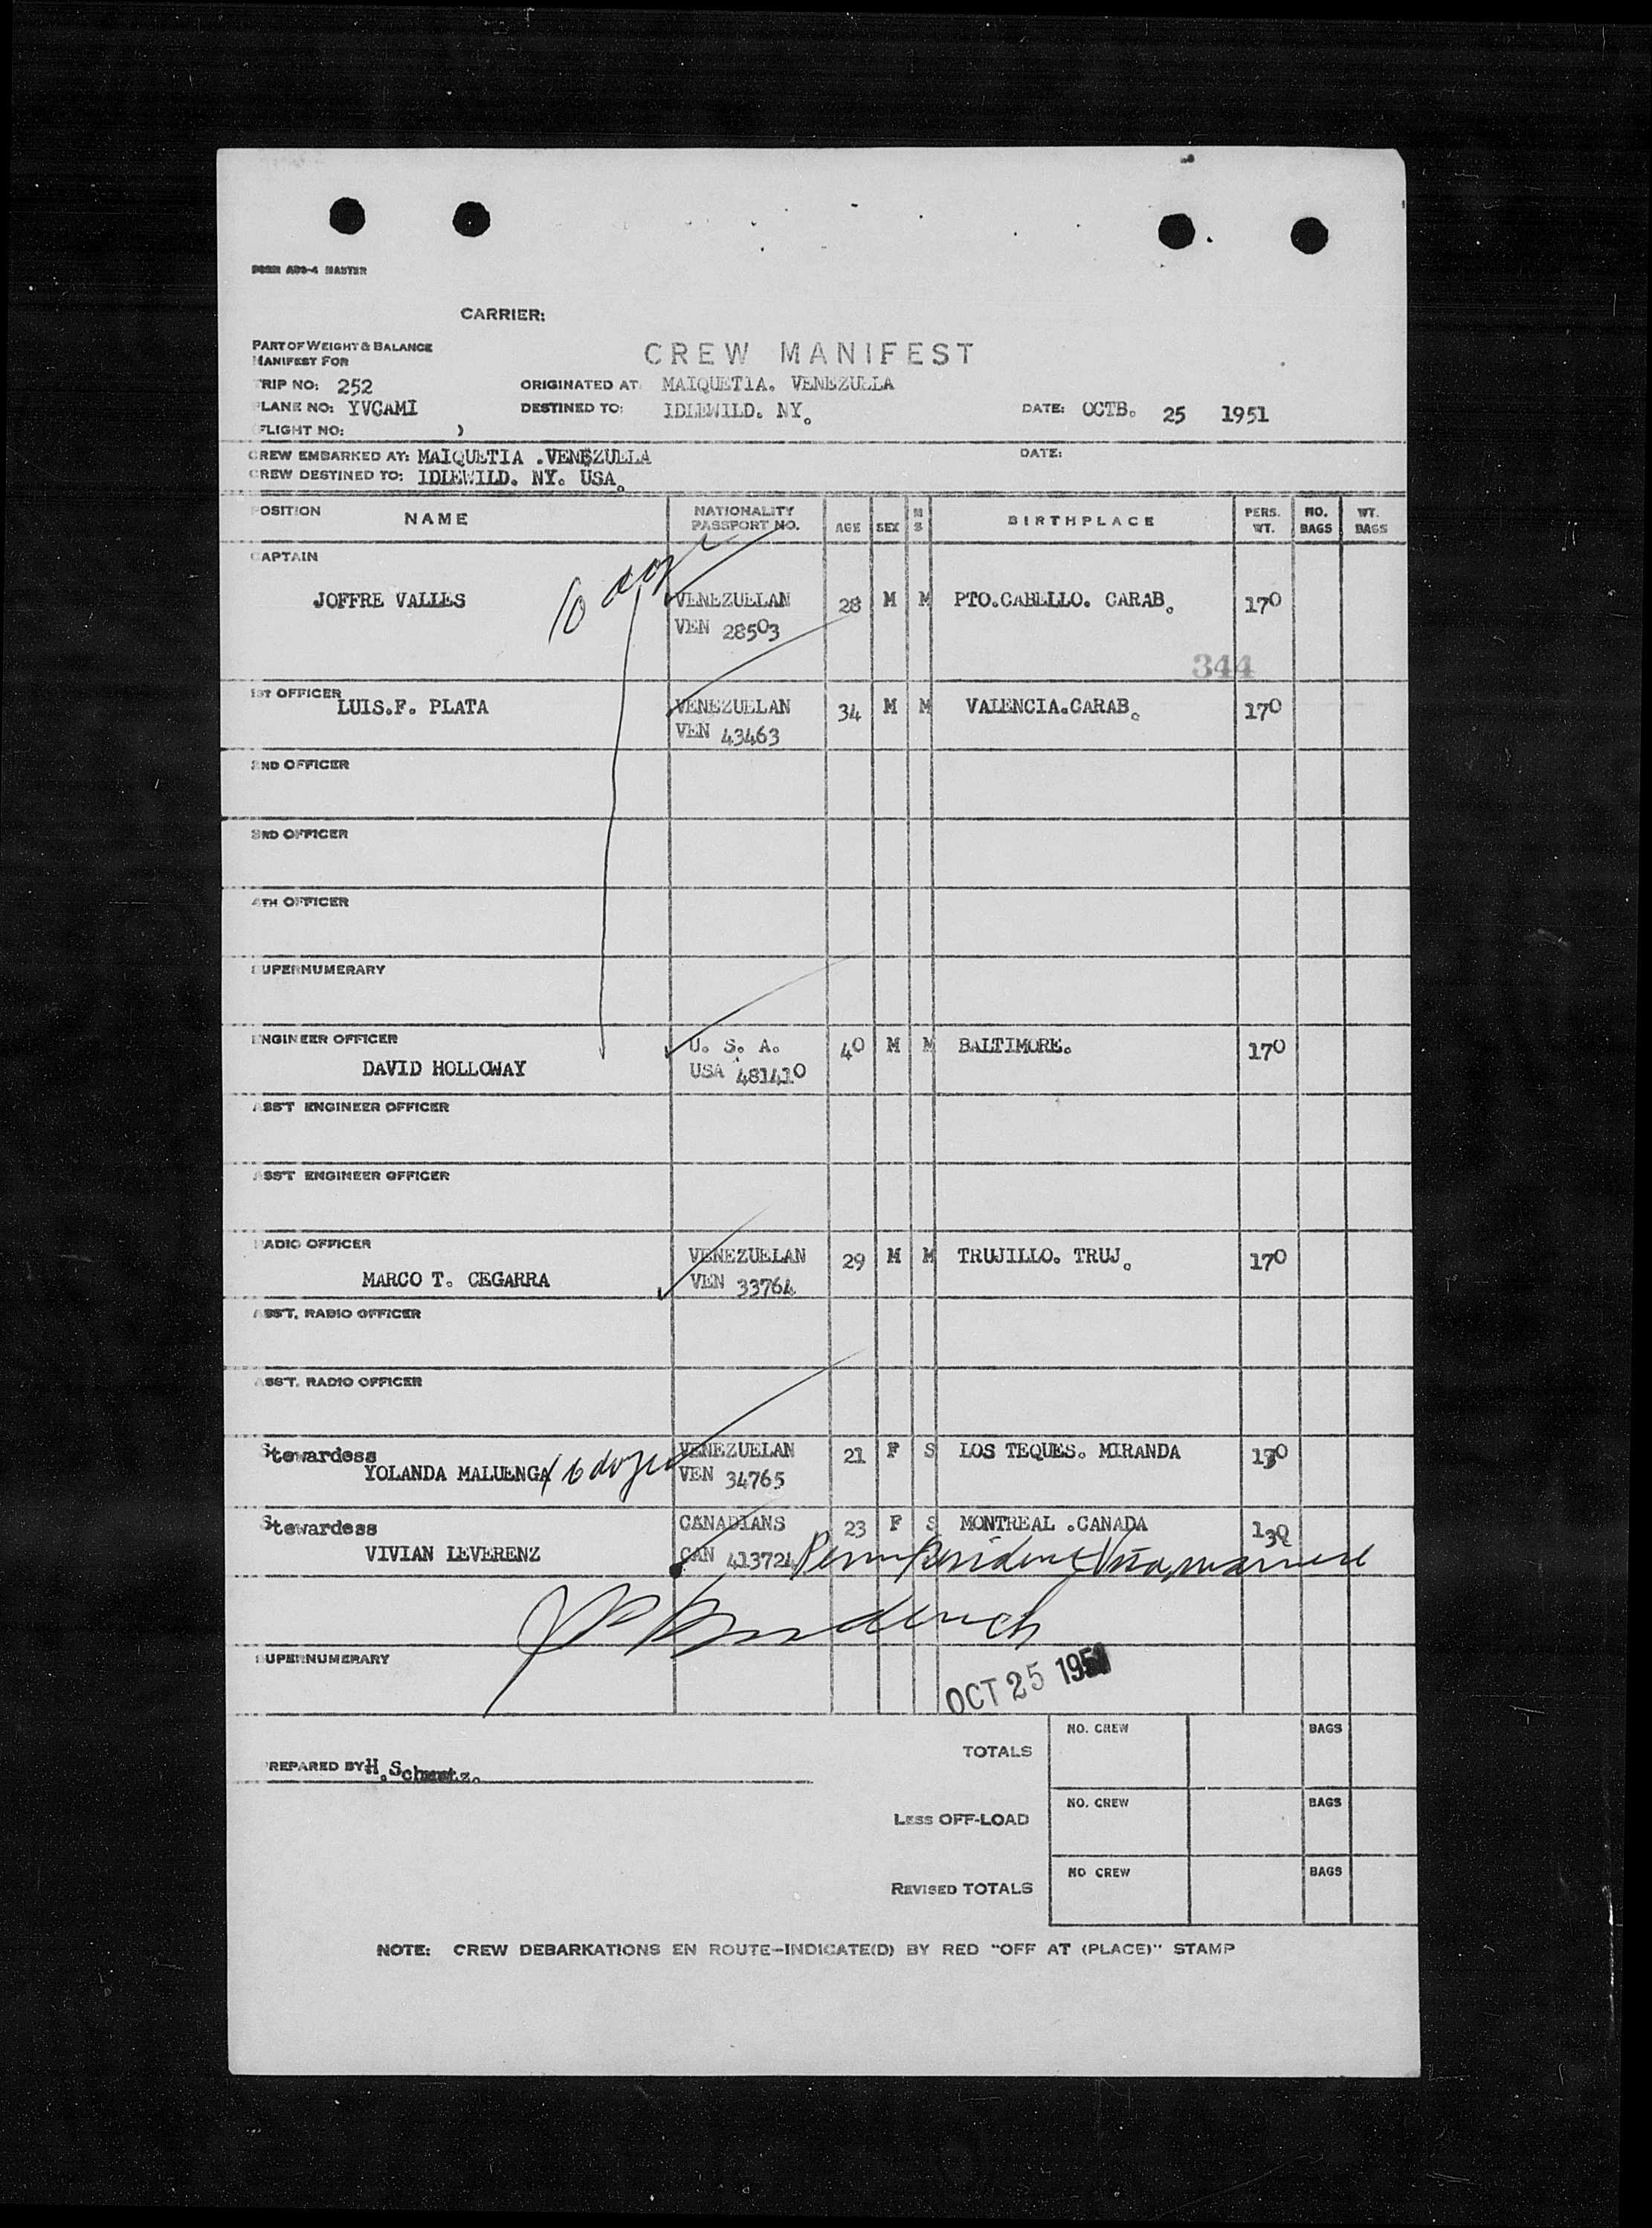 FORM ADS-4 MASTER
CARRIER:
PART OF WEIGHT & BALANCE
MANIFEST FOR
CREW MANIFEST
TRIP NO: 252 ORIGINATED AT: MAIQUETIA. VENEZUELA
PLANE NO: YVCAMI DESTINED TO: IDLEWILD. NY. DATE: OCTB. 25 1951
(FLIGHT NO: )
CREW EMBARKED AT: MAIQUETIA .VENEZUELA DATE:
CREW DESTINED TO: IDLEWILD. NY. USA.
POSITION NAME NATIONALITY PASSPORT NO. AGE SEX M S BIRTHPLACE PERS. WT. NO. BAGS WT. BAGS
CAPTAIN
JOFFRE VALLES VENEZUELAN 28 M M PTO.CABELLO. CARAB. 170
VEN 28503
344
1ST OFFICER
LUIS.F. PLATA VENEZUELAN 34 M M VALENCIA.CARAB. 170
VEN 43463
2ND OFFICER
3RD OFFICER
4TH OFFICER
SUPERNUMERARY
ENGINEER OFFICER U. S. A. 40 M M BALTIMORE. 170
DAVID HOLLOWAY USA 481410
ASS'T ENGINEER OFFICER
ASS'T ENGINEER OFFICER
RADIO OFFICER VENEZUELAN 29 M M TRUJILLO. TRUJ. 170
MARCO T. CEGARRA VEN 33764
ASS'T. RADIO OFFICER
ASS'T. RADIO OFFICER
Stewardess VENEZUELAN 21 F S LOS TEQUES. MIRANDA
YOLANDA MALUENGA VEN 34765
Stewardess CANADIANS 23 F S MONTREAL .CANADA 130
VIVIAN LEVERENZ CAN 413724 Perm Resident
SUPERNUMERARY
OCT 25 1951
TOTALS NO. CREW BAGS
PREPARED BY H.
LESS OFF-LOAD NO. CREW BAGS
REVISED TOTALS NO CREW BAGS
NOTE: CREW DEBARKATIONS EN ROUTE-INDICATE(D) BY RED "OFF AT (PLACE)" STAMP